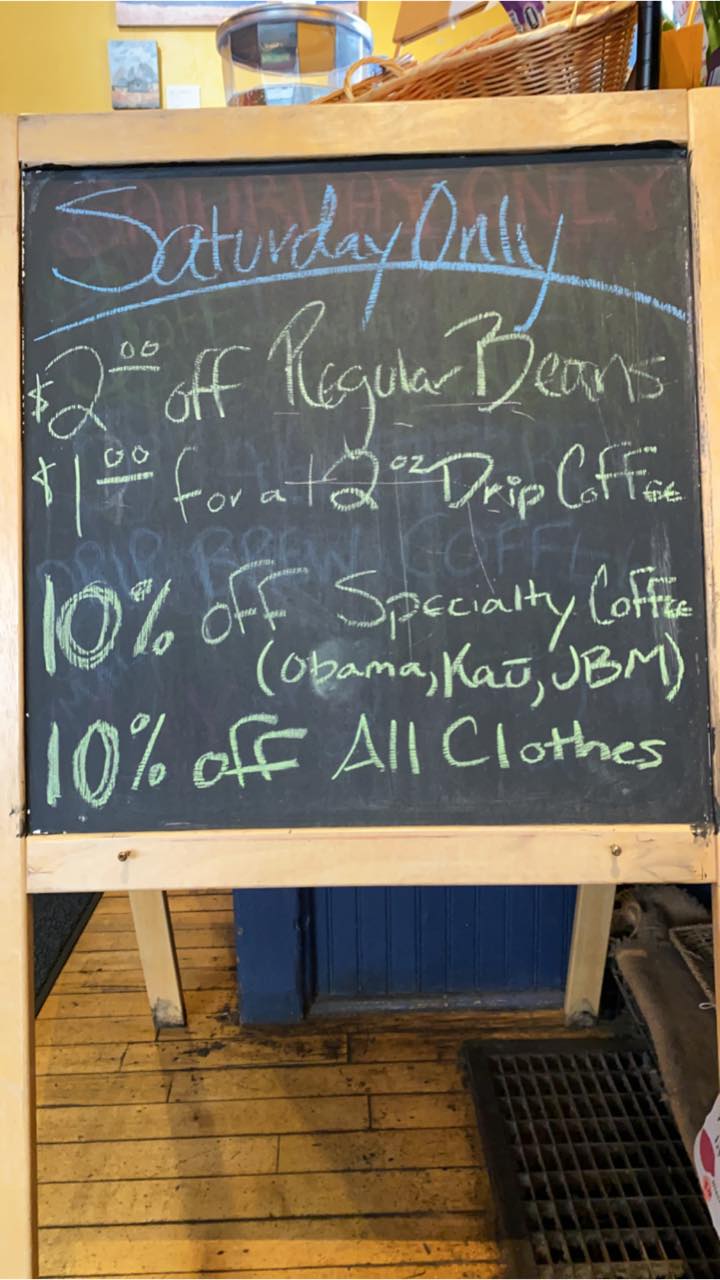 Saturday Only
$2.00 off Regular Beans
$1.00 for a 12oz Drip Coffee
10% off Specialty Coffee
(Obama, Kaū, JBM)
10% off All Clothes